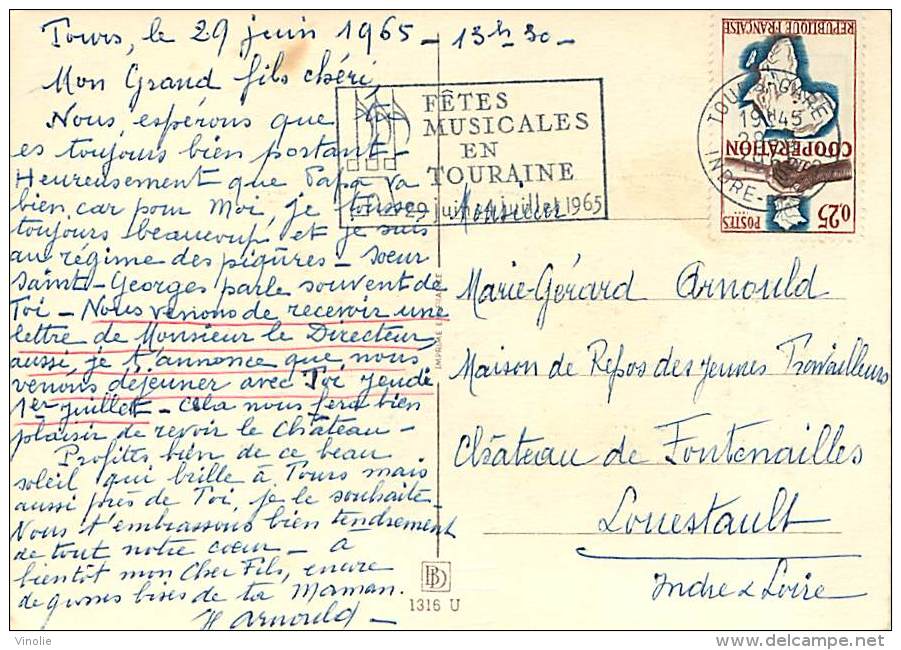 Tours, le 29 juin 1965 - 13h 30 -
Mon Grand fils chéri,
Nous espérons que tu
es toujours bien portant -
Heureusement que Papa va
bien car pour Moi, je tousse
toujours beaucoup et je suis
au régime des piqûres - Soeur
Saint-Georges parle souvent de
Toi - Nous venons de recevoir une
lettre de Monsieur le Directeur,
aussi, je t'annonce que nous
venons déjeuner avec Toi jeudi
1er juillet - Cela nous fera bien
plaisir de revoir le Château -
Profites bien de ce beau
soleil qui brille à Tours mais
aussi près de Toi, je le souhaite -
Nous t'embrassons bien tendrement
de tout notre coeur - à
bientôt mon Cher Fils, encore
de grosses bises de ta Maman.
H Arnould -
FÊTES
MUSICALES
EN
TOURAINE
29 juin 4 juillet 1965
RÉPUBLIQUE FRANÇAISE
COOPÉRATION
POSTES
0,25
TOURS GARE
19H45
INDRE-
Monsieur
Marie-Gérard Arnould
Maison de Repos des jeunes Travailleurs
Château de Fontenailles
Louestault
Indre & Loire
IMPRIMÉ EN FRANCE
1316 U
Vinolie
www.delcampe.net